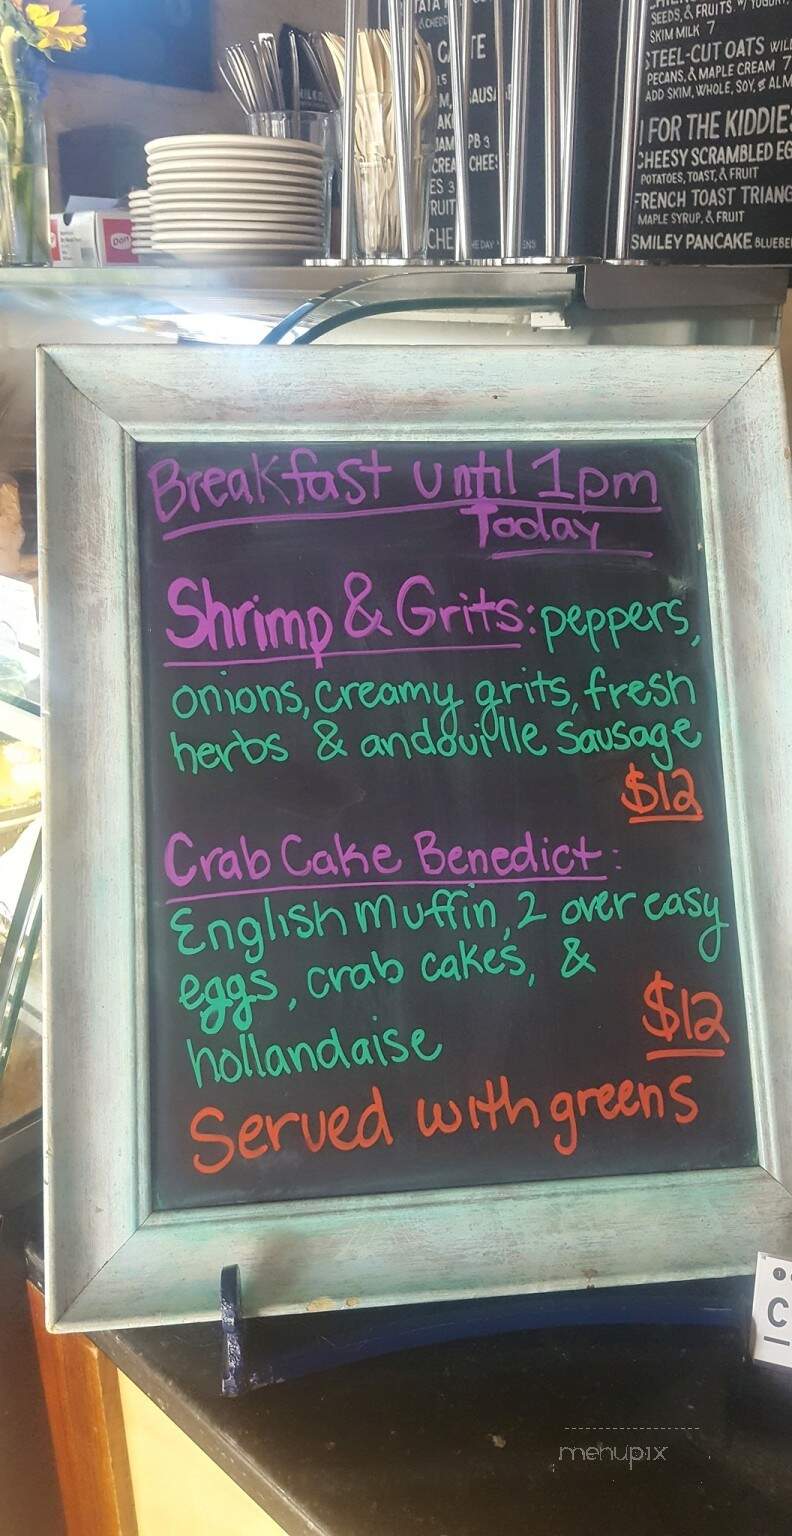 SEEDS, & FRUITS. W/ YOGURT,
SKIM MILK 7
STEEL-CUT OATS
PECANS, & MAPLE CREAM 7
ADD SKIM, WHOLE, SOY, & ALM
FOR THE KIDDIES
CHEESY SCRAMBLED EG
POTATOES, TOAST, & FRUIT
FRENCH TOAST TRIANG
MAPLE SYRUP, & FRUIT
SMILEY PANCAKE BLUEBE
PB 3
Breakfast until 1pm
Today
Shrimp & Grits: peppers,
onions, creamy grits, fresh
herbs & andouille sausage
$12
Crab Cake Benedict:
English Muffin, 2 over easy
eggs, crab cakes, &
hollandaise
$12
Served with greens
C
menupix